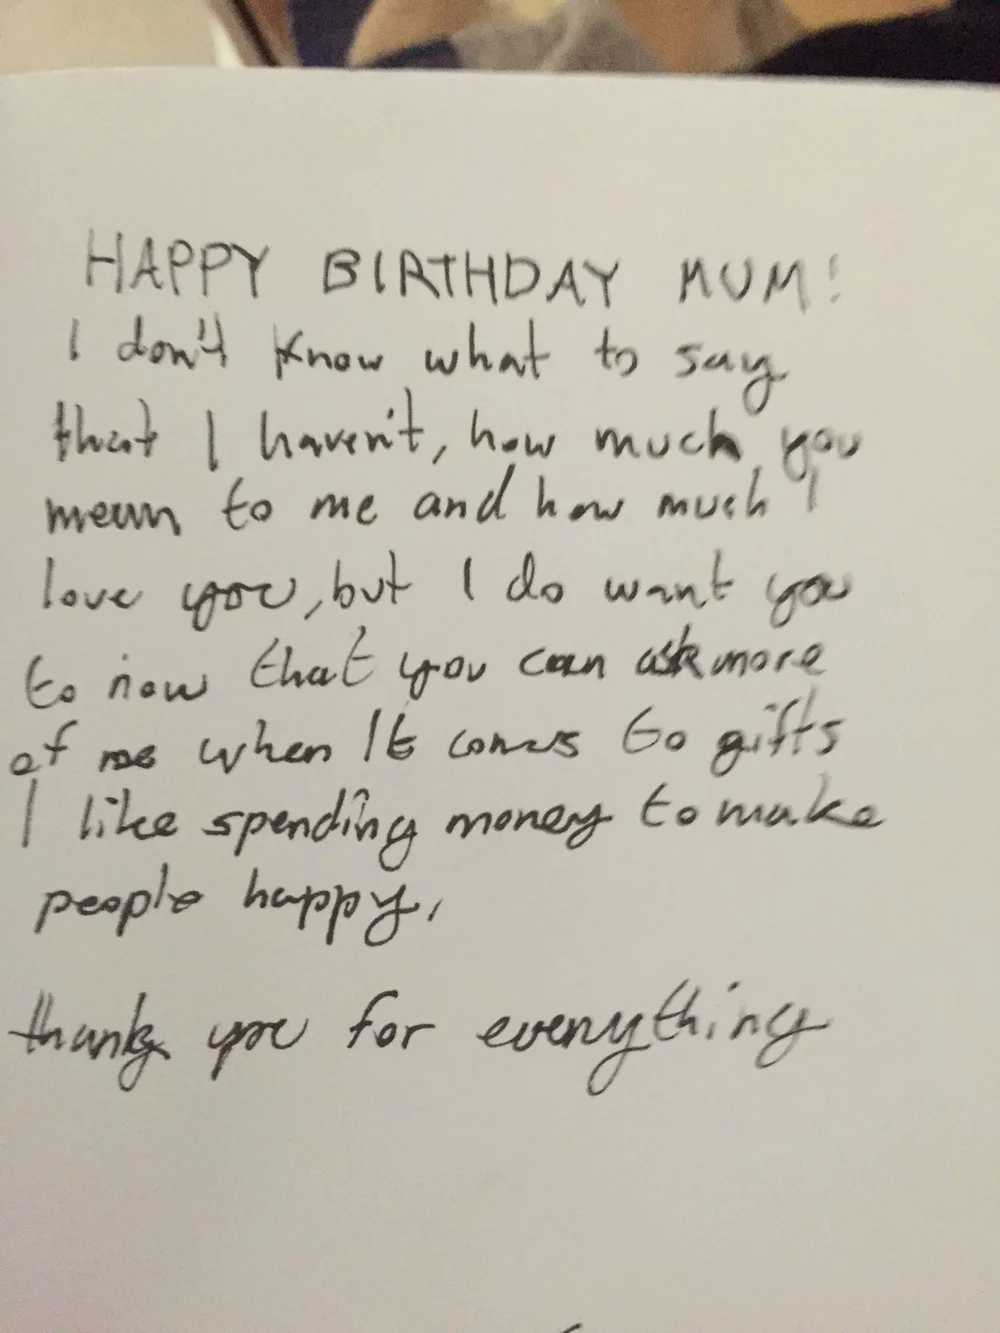 HAPPY BIRTHDAY MUM!
I don't know what to say
that I haven't, how much you
mean to me and how much I
love you, but I do want you
to now that you can ask more
of me when It comes to gifts
I like spending money to make
people happy,
thank you for everything